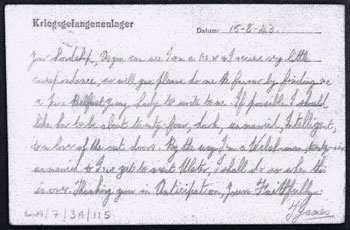 Kriegsgefangenenlager
Datum: 15-8-43
Your Lordship, As you can see I am a P.O.W & I receive very little
correspondence, so will you please do me the favour by finding me
a nice Belfast young lady to write to me. If possible I should
like her to be about twenty four, dark, unmarried, Intelligent,
& a lover of the out doors. By the way I'm a Welsh man,
unmarried & I've yet to visit Ulster, I shall do so when this
is over. Thanking you in Anticipation, Yours Faithfully
J James
LA/7/3A/115